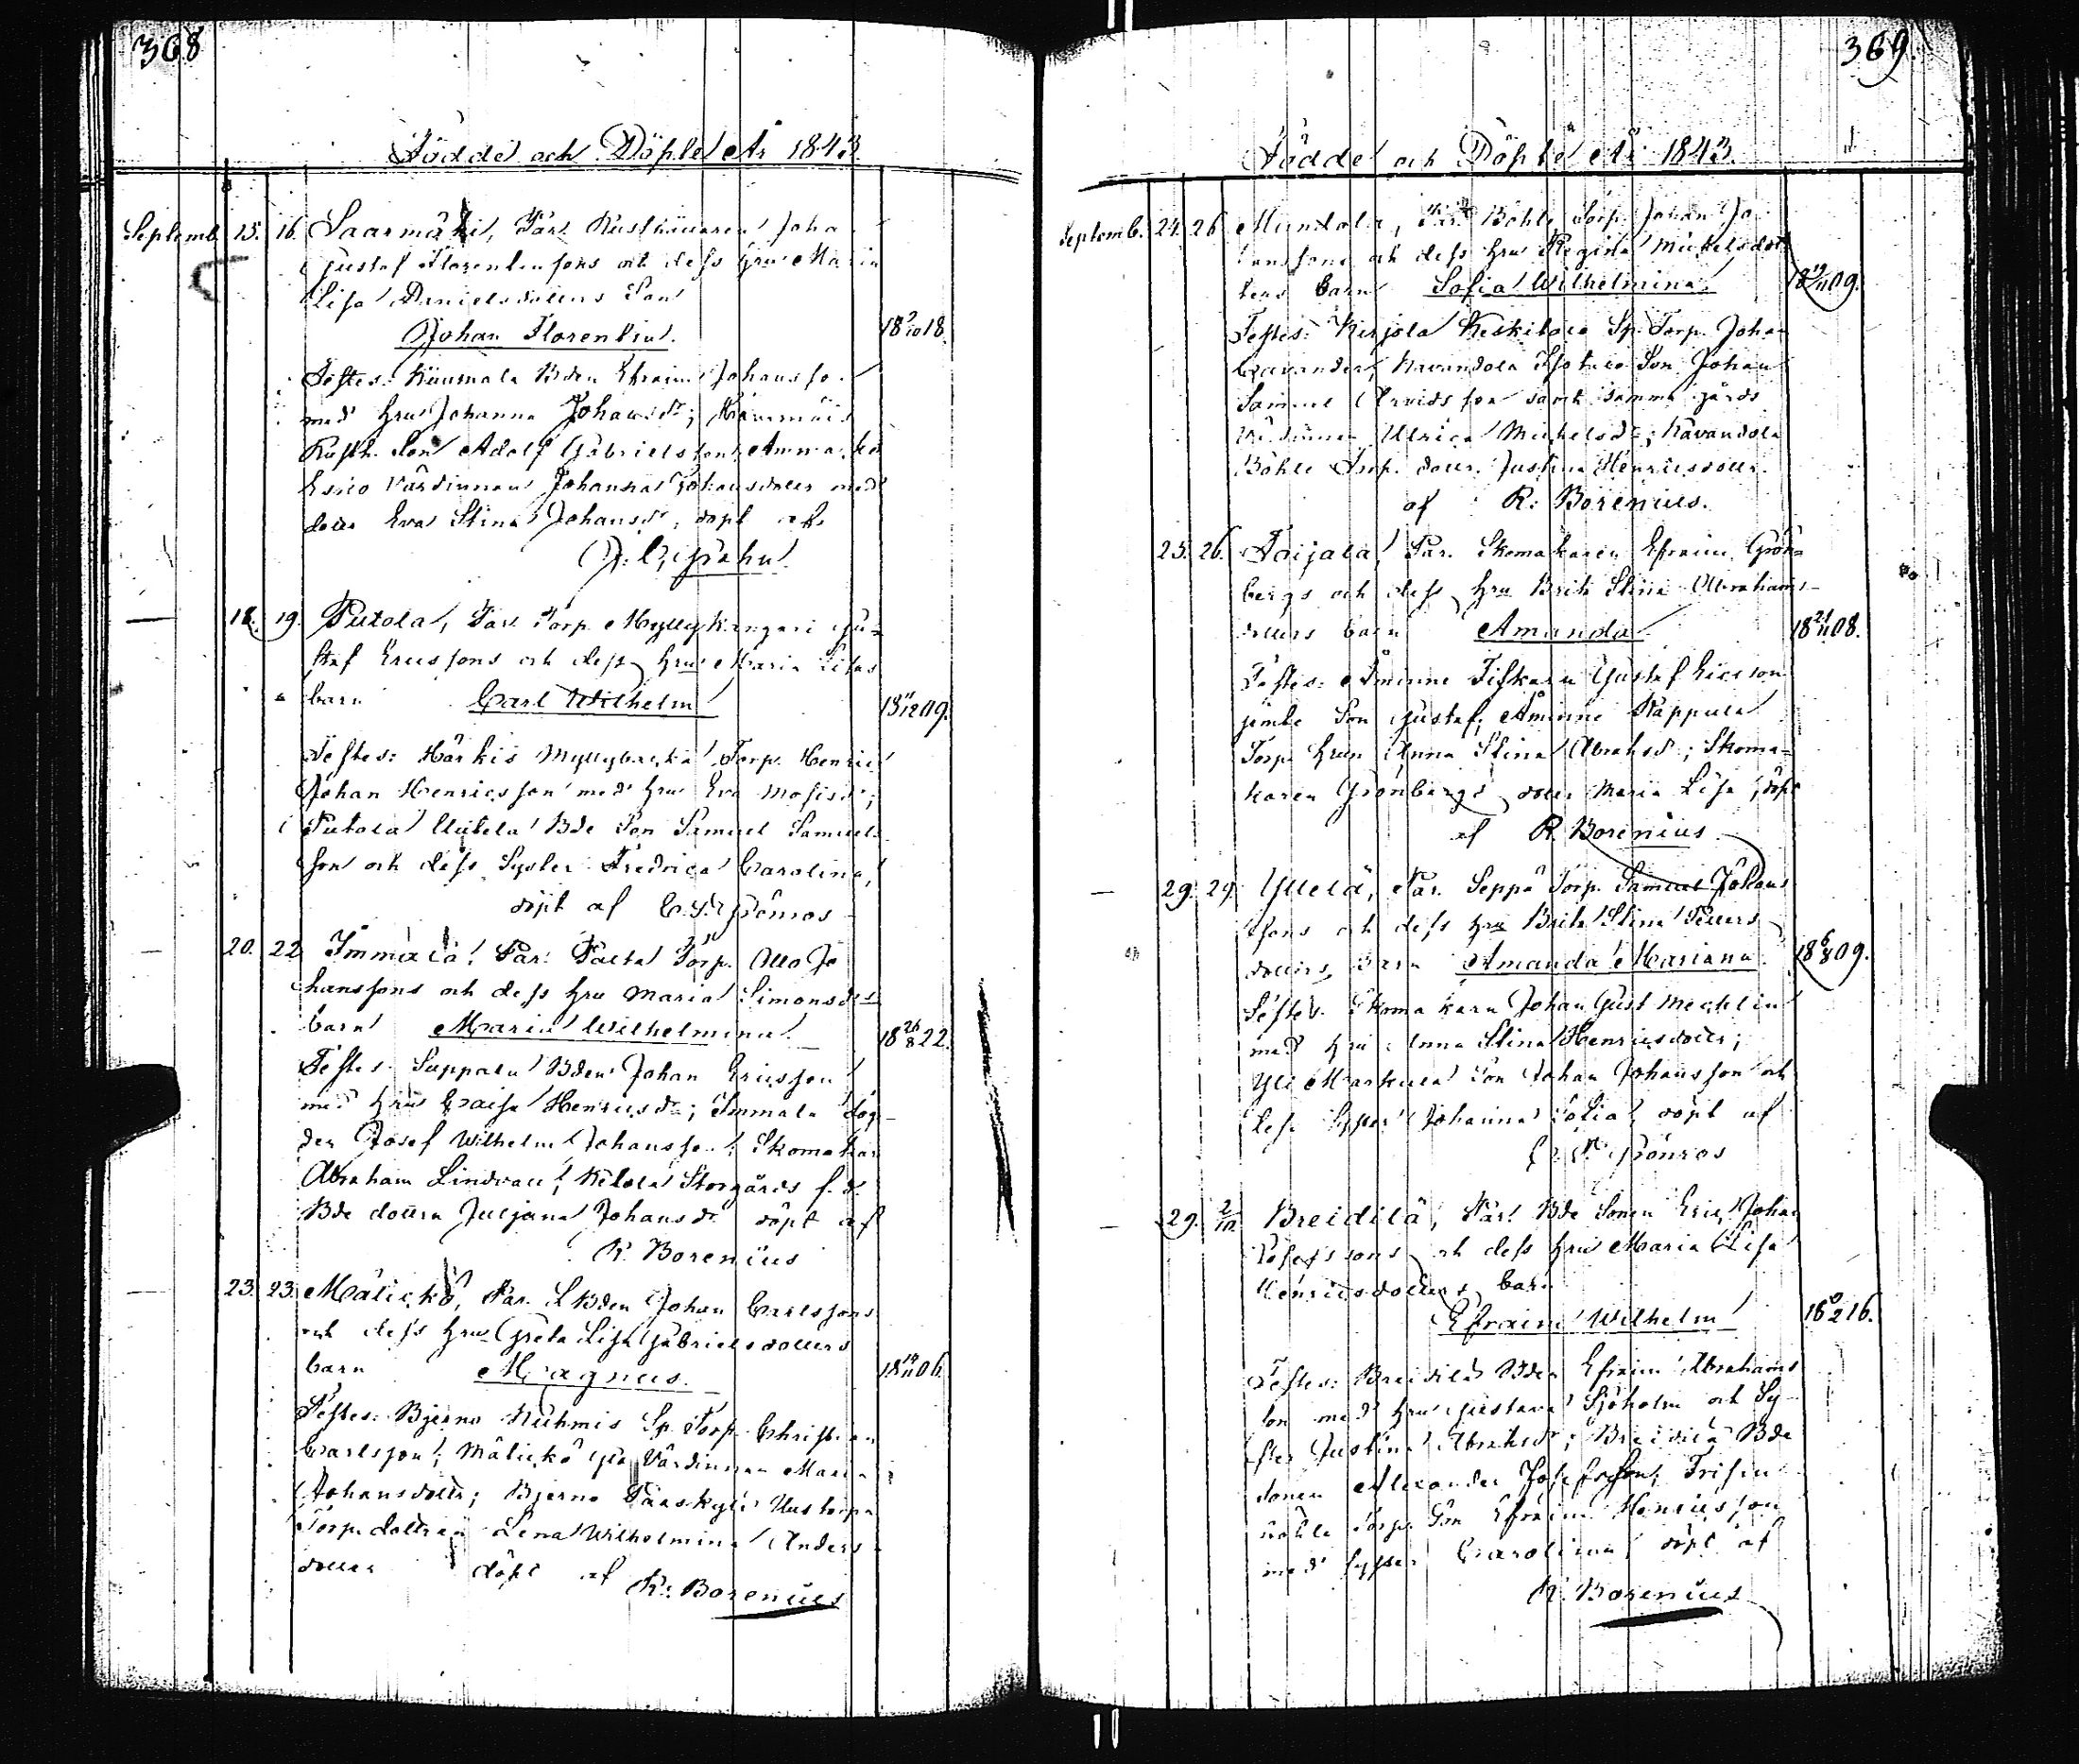 368
Födde och Döpte År 1843.
Septemb. 15. 16. Saarmäki, Par. Rusthållaren Joha
Gustaf Florentinssons och dess hru Maria
Lisa Danielsdotters Son
Johan Florentin. 18 9/10 18.
Testes: Bden Efraim Johansso
med hru Johanna Johansdr;
Rusth. Son Adolf Gabrielsson,
Värdinnan Johanna Johansdotter med
dotter Eva Stina Johansdr, döpt af
18. 19. Putola, Par. Torp. Myllykangari Gu-
staf Ericssons och dess hru Maria Lisas
barn Carl Wilhelm 18 11/12 09.
Testes: Härkis Myllybacka Torp. Henric
Johan Henricsson med hru Eva Mosisdr;
Putola Uutela Bde Son Samuel Samuels
son och dess Syster Fredrica Carolina,
döpt af C. F. Grönros
20. 22 Immala, Par. Torp. Otto Jo
hanssons och dess hru Maria Simonsdrs
barn Maria Wilhelmina. 18 26/8 22.
Testes Suppala Bden Johan Ericsson
med hru Caisa Henricsdr; Immala
den Josef Wilhelm Johansson; Skomakar
Abraham Lindvall, Ketola Storgårds f. d.
Bde dottren Juljana Johansdr döpt af
R. Borenius
23. 23. Mälickö, Par. Bden Johan Carlssons
och dess hru Greta Lisa Gabrielsdotters
barn Magnus. 18 14/11 06.
Testes: Bjerno Sp. Torp. Christian
Carlsson; Mälickö Värdinnan Maria
Johansdotter; Bjerno
Torp. dottren Lena Wilhelmina Anders
dotter döpt af R. Borenius
369.
Födde och Döpte År 1843.
Septemb. 24. 26 Mundola, Par. Böhle Torp. Johan Jo
hanssons och dess hru Regina Mickelsdot
ters barn Sofia Wilhelmina. 18 19/11 09.
Testes: Kirjola Keskitalo Sp. Torp. Johan
Cavander, Kavandola Isotalo Son Johan
Samuel Arvidsson samt samma gårds
Värdinnan Ulrica Michelsdr; Kavandola
Böhle Torp. dotter Justina Henricsdotter
af R. Borenius.
25. 26. Toijala, Par. Skomakaren Efraim Grön-
bergs och dess hru Brita Stina Abrahams-
dotters barn Amanda 18 21/11 08.
Testes: Åminne Fiskarn Gustaf Ericsson
jemte Son Gustaf; Åminne Käppälä
Torp. hrun Anna Stina Abrahsdr; Skoma-
karen Grönbergs dotter Maria Lisa, döpt
af R. Borenius
29. 29. Ylletä, Par. Seppä Torp. Samuel Johans
sons och dess hru Brita Stina Petters
dotters barn Amanda Mariana 18 6/8 09.
Testes. Skomakarn Johan Gust Mechlin
med hru Anna Stina Henricsdotter;
Yli Markula Son Johan Johansson och
dess Syster Johanna Sofia, döpt af
C. F. Grönros
29. 2/10 Breidilä, Par. Bde Sonen Eric Johan
Josefssons och dess hru Maria Lisa
Henricsdotters barn
Efraim Wilhelm 18 9/2 16.
Testes: Breidilä Bden Efraim Abrahams
son med hru Gustava Sjöholm och Sy-
ster Justina Abrahsdr; Breidilä Bde
sonen Alexander Josefsson,
Torp. Son Efraim Henricsson
med syster Carolina, döpt af
R. Borenius